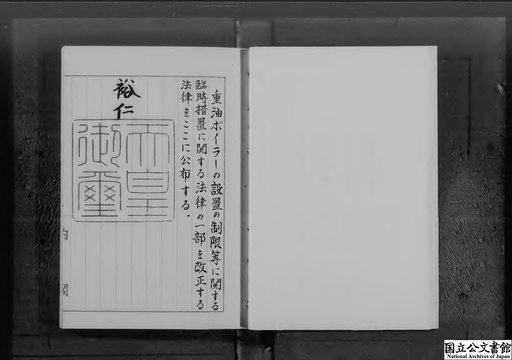 重油ボイラーの設置の制限等に関する
臨時措置に関する法律の一部を改正する
法律をここに公布する。
裕仁
天皇
御璽
国立公文書館
National Archives of Japan